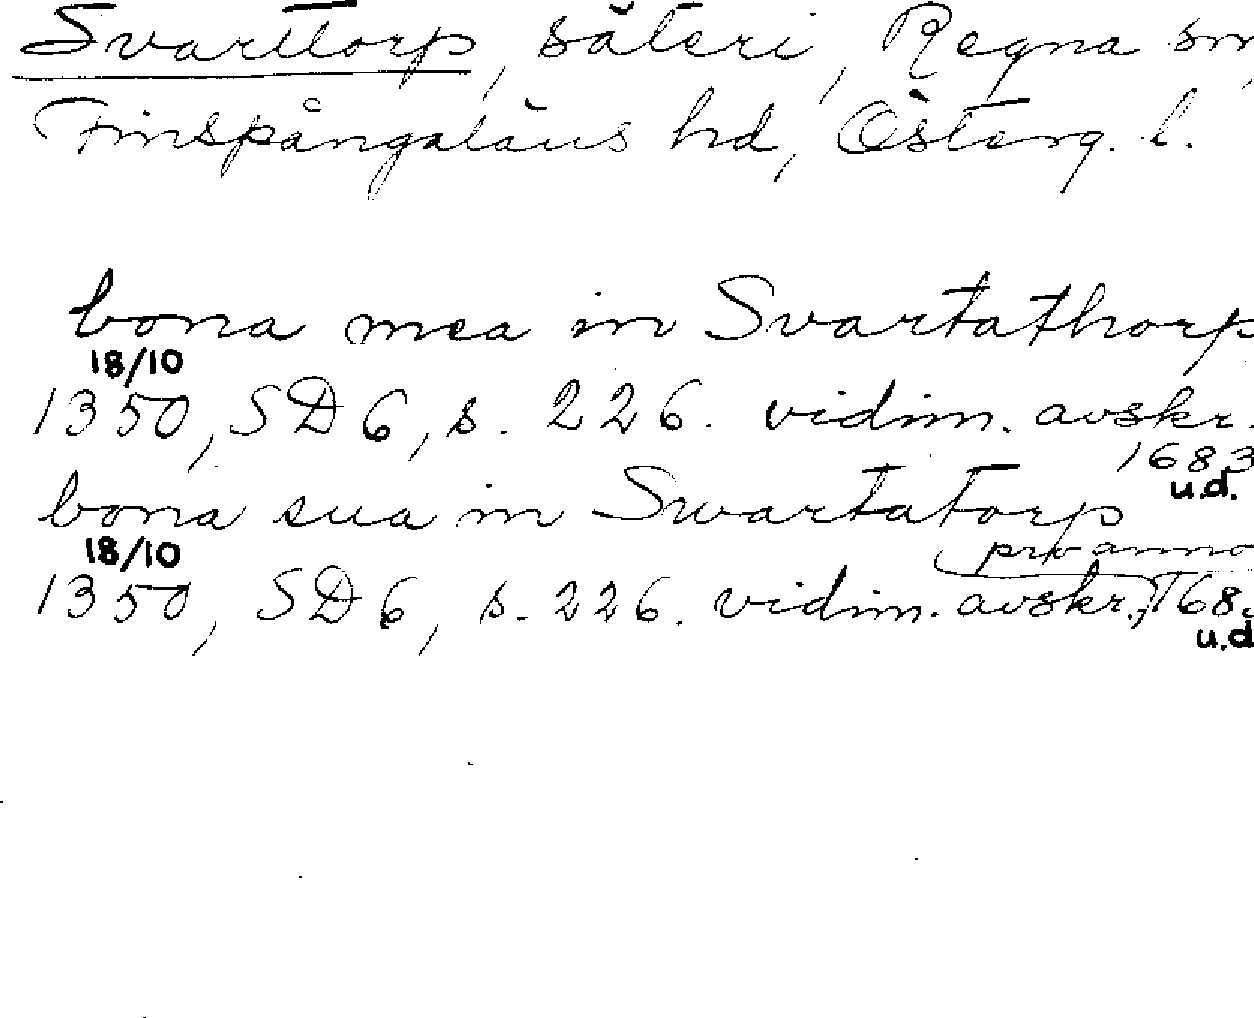 Svarttorp, säteri, Regna sn,
Finspångaläns hd, Österg. l.
bona mea in Svartathorp
18/10
1350, SD 6, s. 226. vidim. avskr.
1683
u.d.
bona sua in Swartatorp
18/10
pro anno
1350, SD 6, s. 226. vidim. avskr., 168
u.d